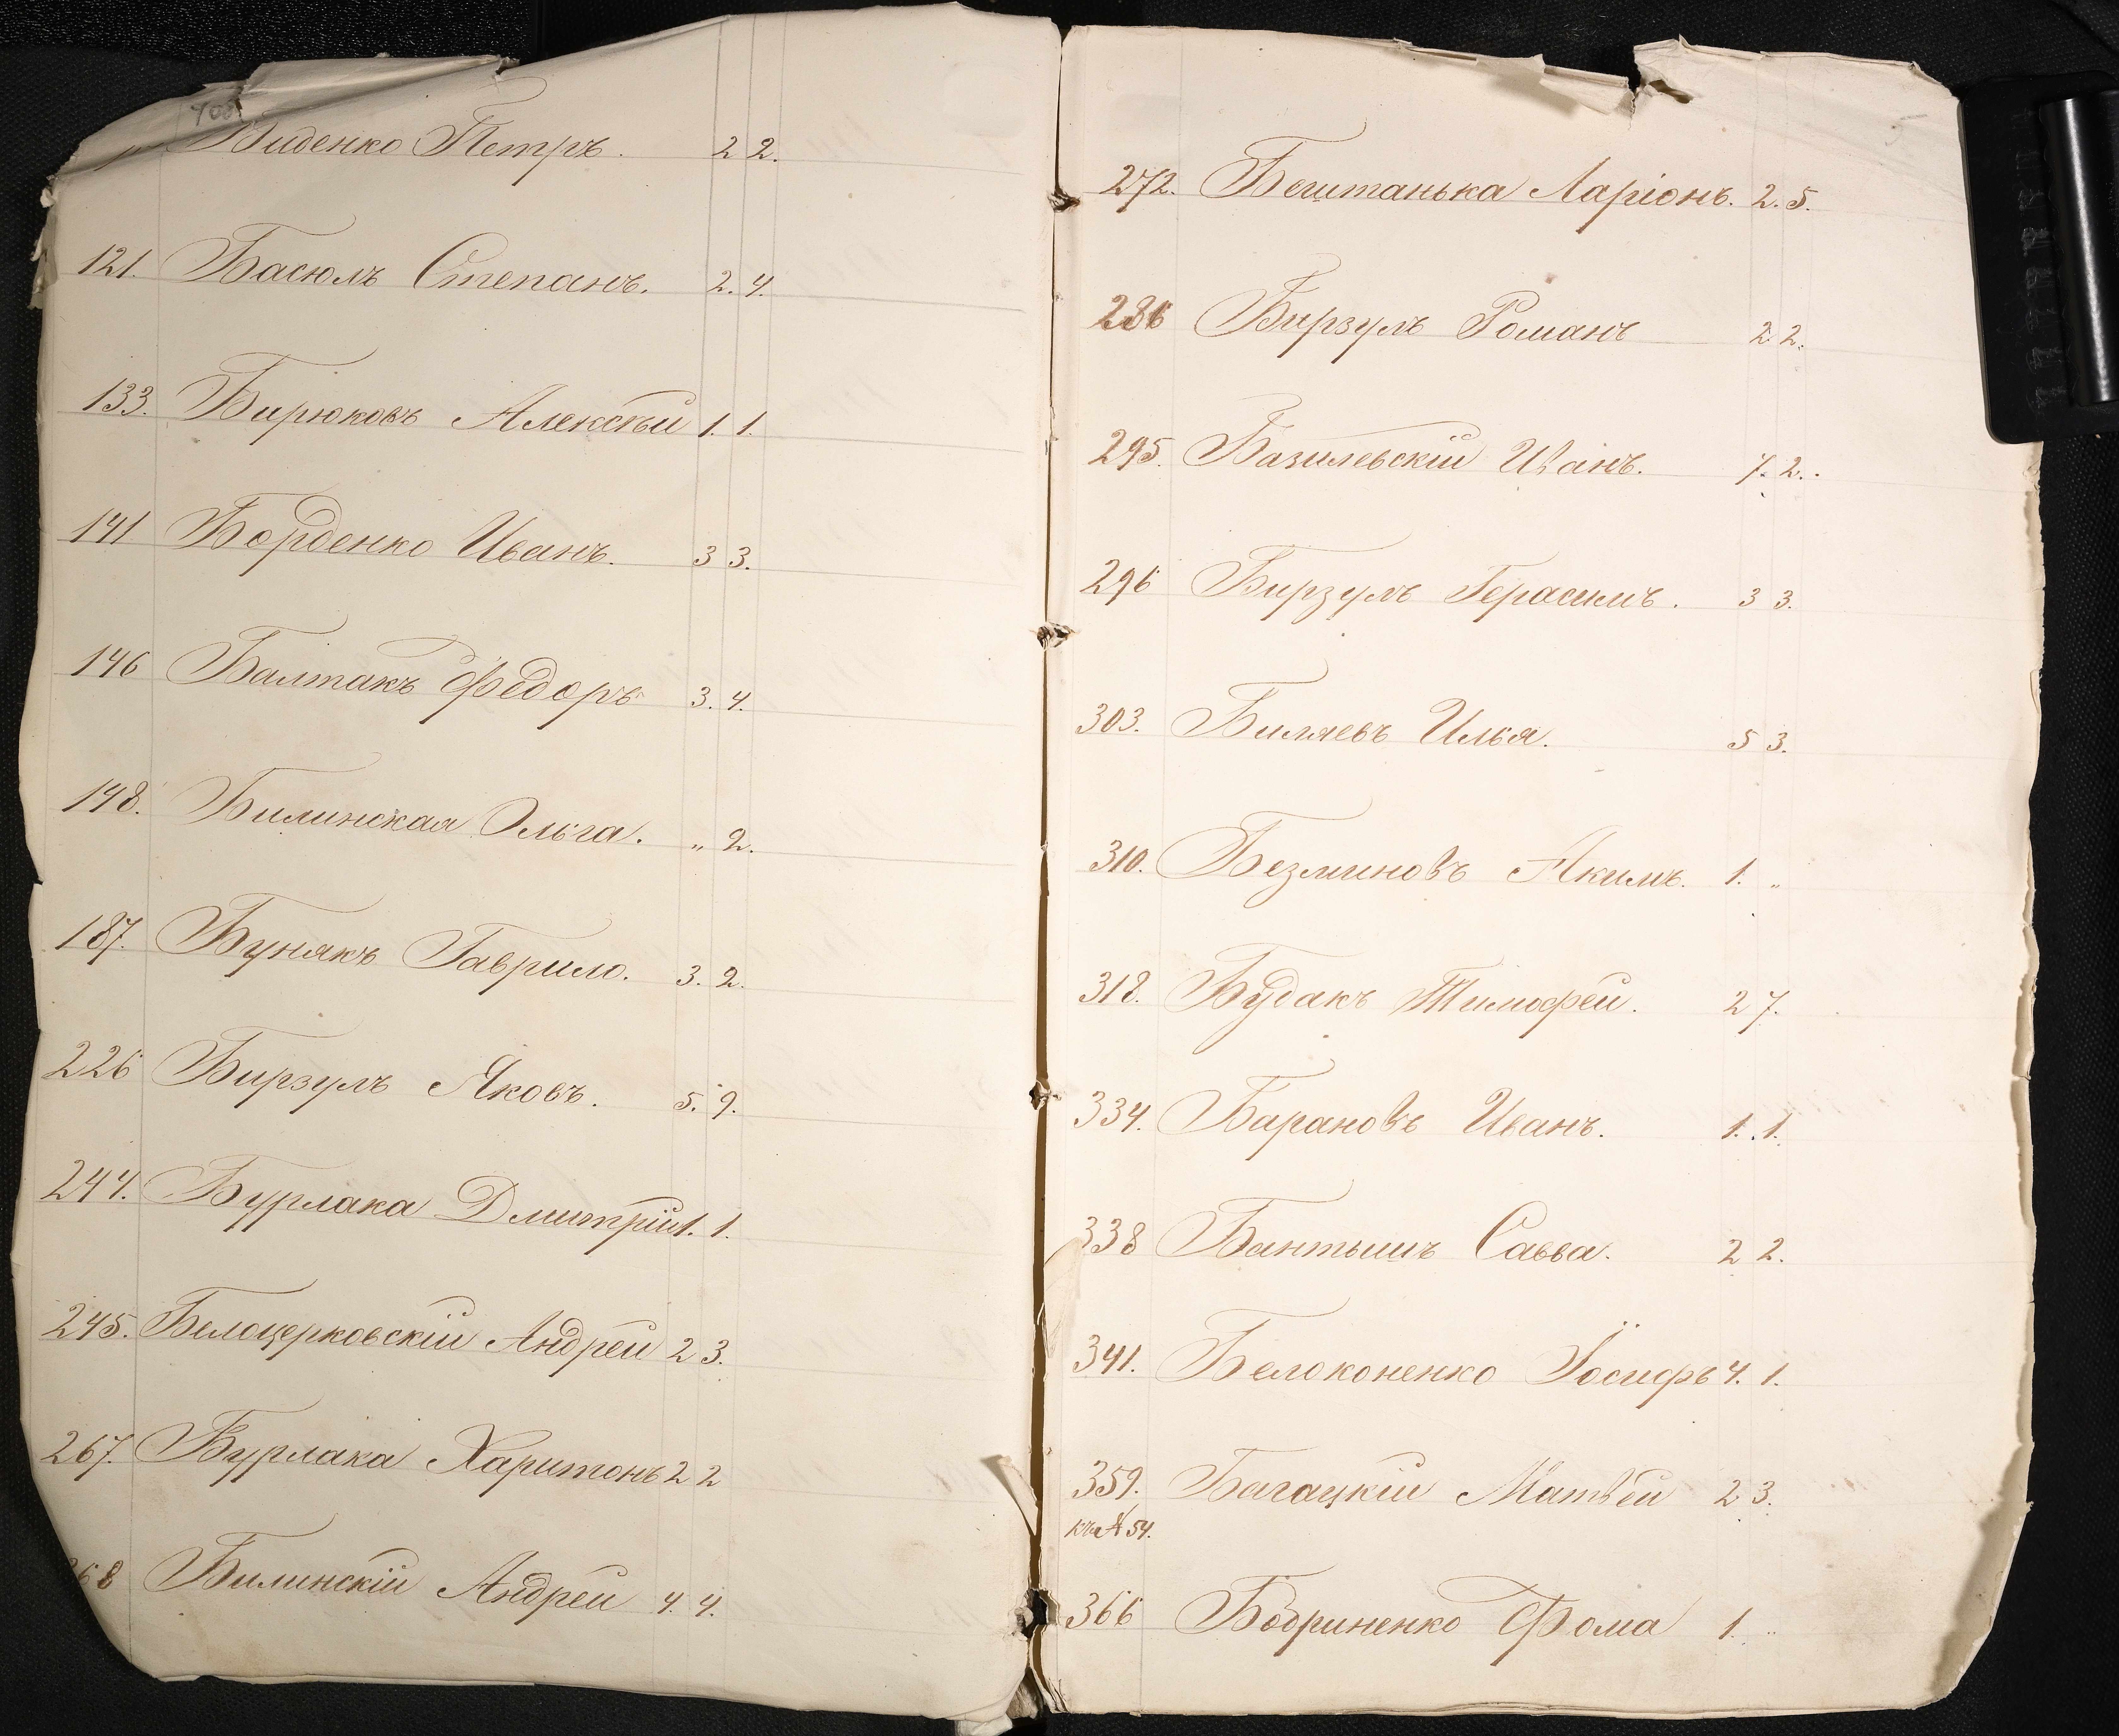 Биденко Петръ. 2 2.
121. Басюлъ Степанъ. 2. 4.
133. Бирюковъ Алексѣй 1. 1.
141 Борденко Иванъ. 3 3.
146 Балтакъ Федоръ 3. 4.
148. Билинская Ольга. „ 2.
187. Бунякъ Гаврило. 3. 2.
226 Бирзулъ Яковъ. 5. 9.
244. Бурлака Дмитрій 1. 1.
245. Белоцерковскій Андрей 2 3.
267. Бурлака Харитонъ 2 2
268 Билинскій Андрей 4. 4.
272. Бештанька Ларіонъ. 2. 5.
286 Бирзулъ Романъ 2 2.
295. Базилевскій Иванъ. 7. 2.
296 Бирзулъ Герасимъ. 3 3.
303. Биляевъ Илья. 5 3.
310. Безминовъ Акимъ. 1. „
318. Будакъ Тимофей. 2 7.
334. Барановъ Иванъ. 1. 1.
338 Бантышъ Савва. 2 2.
341. Белоконенко Іосифъ 4. 1.
359. Багацкій Матвей 2 3.
къ № 54.
366 Бодриненко Фома 1. „